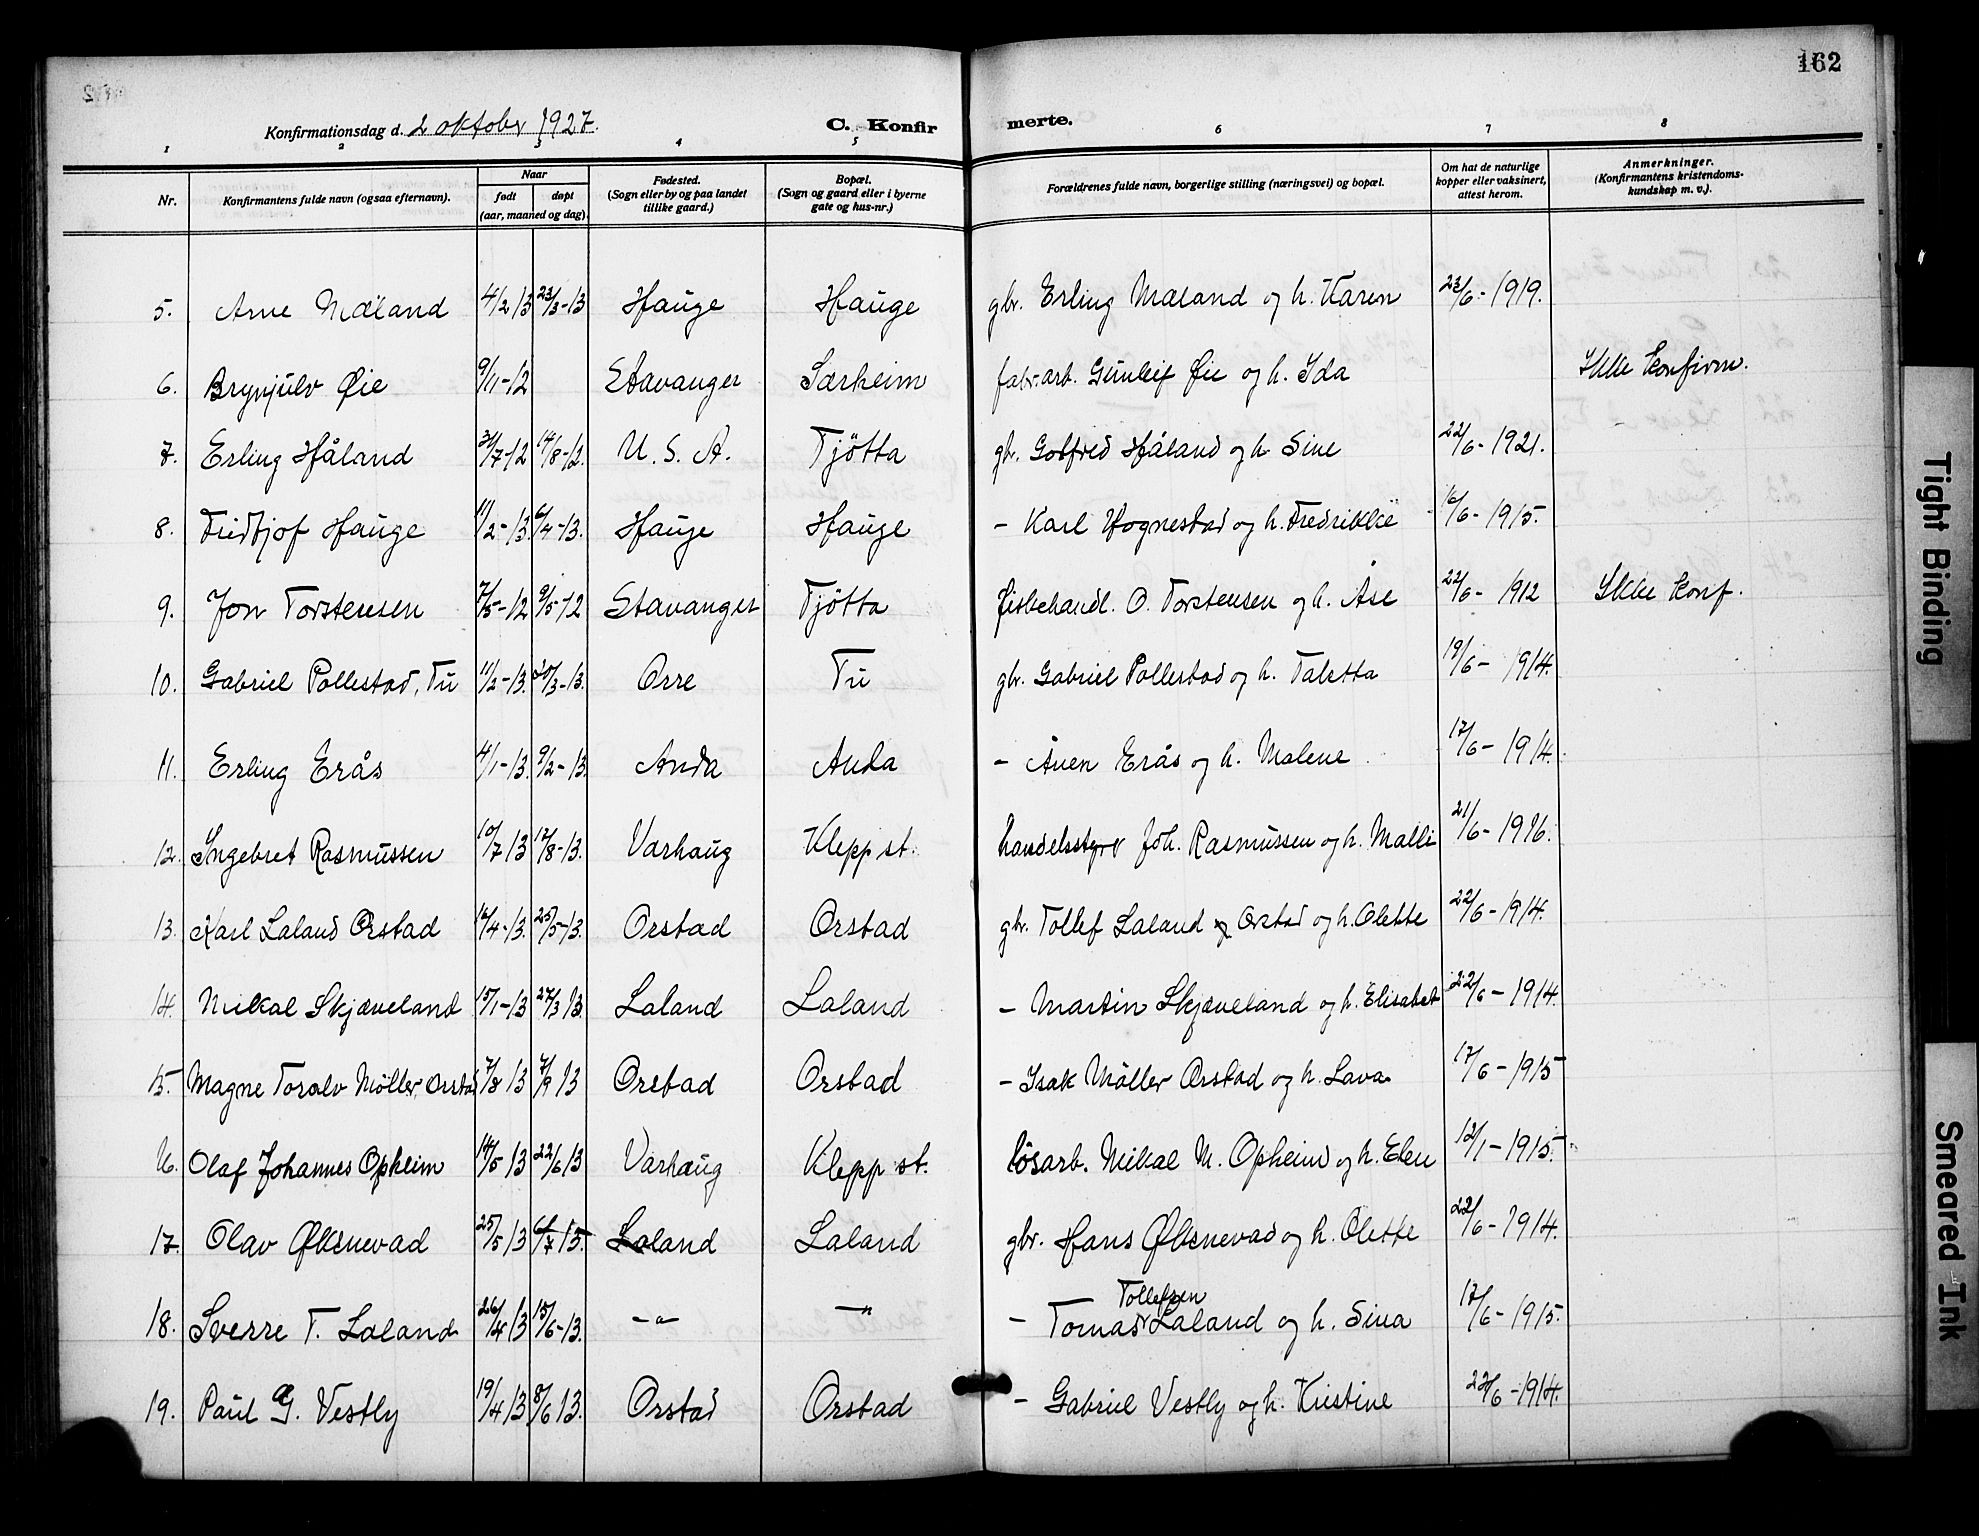 162
Konfirmationsdag d. 2 oktober 1927.
C. Konfirmerte.
1 2 3 4 5 6 7 8
Nr. Konfirmantens fulde navn (ogsaa efternavn). Naar født døpt (aar, maaned og dag). Fødested. (Sogn eller by og paa landet tillike gaard.) Bopæl. (Sogn og gaard eller i byerne gate og hus-nr.) Forældrenes fulde navn, borgerlige stilling (næringsvei) og bopæl. Om hat de naturlige kopper eller vaksinert, attest herom. Anmerkninger. (Konfirmantens kristendoms-kundskap m. v.).
5. Arne Mæland 4/2 13 23/3-13 Hauge Hauge gbr. Erling Mæland og h. Karen 23/6-1919.
6. Brynjulv Øie 9/11-12 Stavanger Særheim fabr.arb. Gunleif Øie og h. Ida Ikke konfirm.
7. Erling Håland 31/7-12 14/8-12. U. S. A. Tjøtta gbr. Gotfred Håland og h. Sine 22/6-1921.
8. Fridtjof Hauge 11/2-13. 6/4-13. Hauge Hauge - Karl Hognestad og h. Fredrikke 16/6-1915.
9. Jon Torstensen 7/5-12 9/5-12 Stavanger Tjøtta fiskehandl. O. Torstensen og h. Åse 22/6- 1912 Ikke konf.
10. Gabriel Pollestad, Tu 11/2-13. 30/3-13. Orre Tu gbr. Gabriel Pollestad og h. Taletta 19/6- 1914.
11. Erling Erås 4/1-13. 9/2-13. Anda Anda - Åuen Erås og h. Malene 17/6- 1914.
12. Ingebret Rasmussen 10/7 13 17/8-13. Varhaug Klepp st. handelsstyrer Joh. Rasmussen og h. Malli 21/6-1916.
13. Karl Laland Orstad 16/4-13. 25/5-13. Orstad Orstad gbr. Tollef Laland Orstad og h. Olette 22/6-1914.
14. Mikal Skjæveland 15/1-13 27/3 13. Laland Laland - Martin Skjæveland og h. Elisabet 22/6-1914.
15. Magne Toralv Møller, Orstad 7/8 13 7/9 13 Orstad Orstad - Isak Møller Orstad og h. Lava 17/6-1915
16. Olaf Johannes Opheim 14/5 13 22/6 13 Varhaug Klepp st. løsarb. Mikal M. Opheim og h. Elen 12/1-1915.
17. Olav Øksnevad 25/5 13 6/7 15. Laland Laland gbr. Hans Øksnevad og h. Olette 22/6-1914.
18. Sverre T. Laland 26/4 13 15/6-13. -"- -"- - Tomas Tollefsen Laland og h. Sina 17/6-1915.
19. Paul G. Vestly 19/4 13 8/6 13. Orstad Orstad - Gabriel Vestly og h. Kristine 22/6-1914.
Tight Binding
Smeared Ink